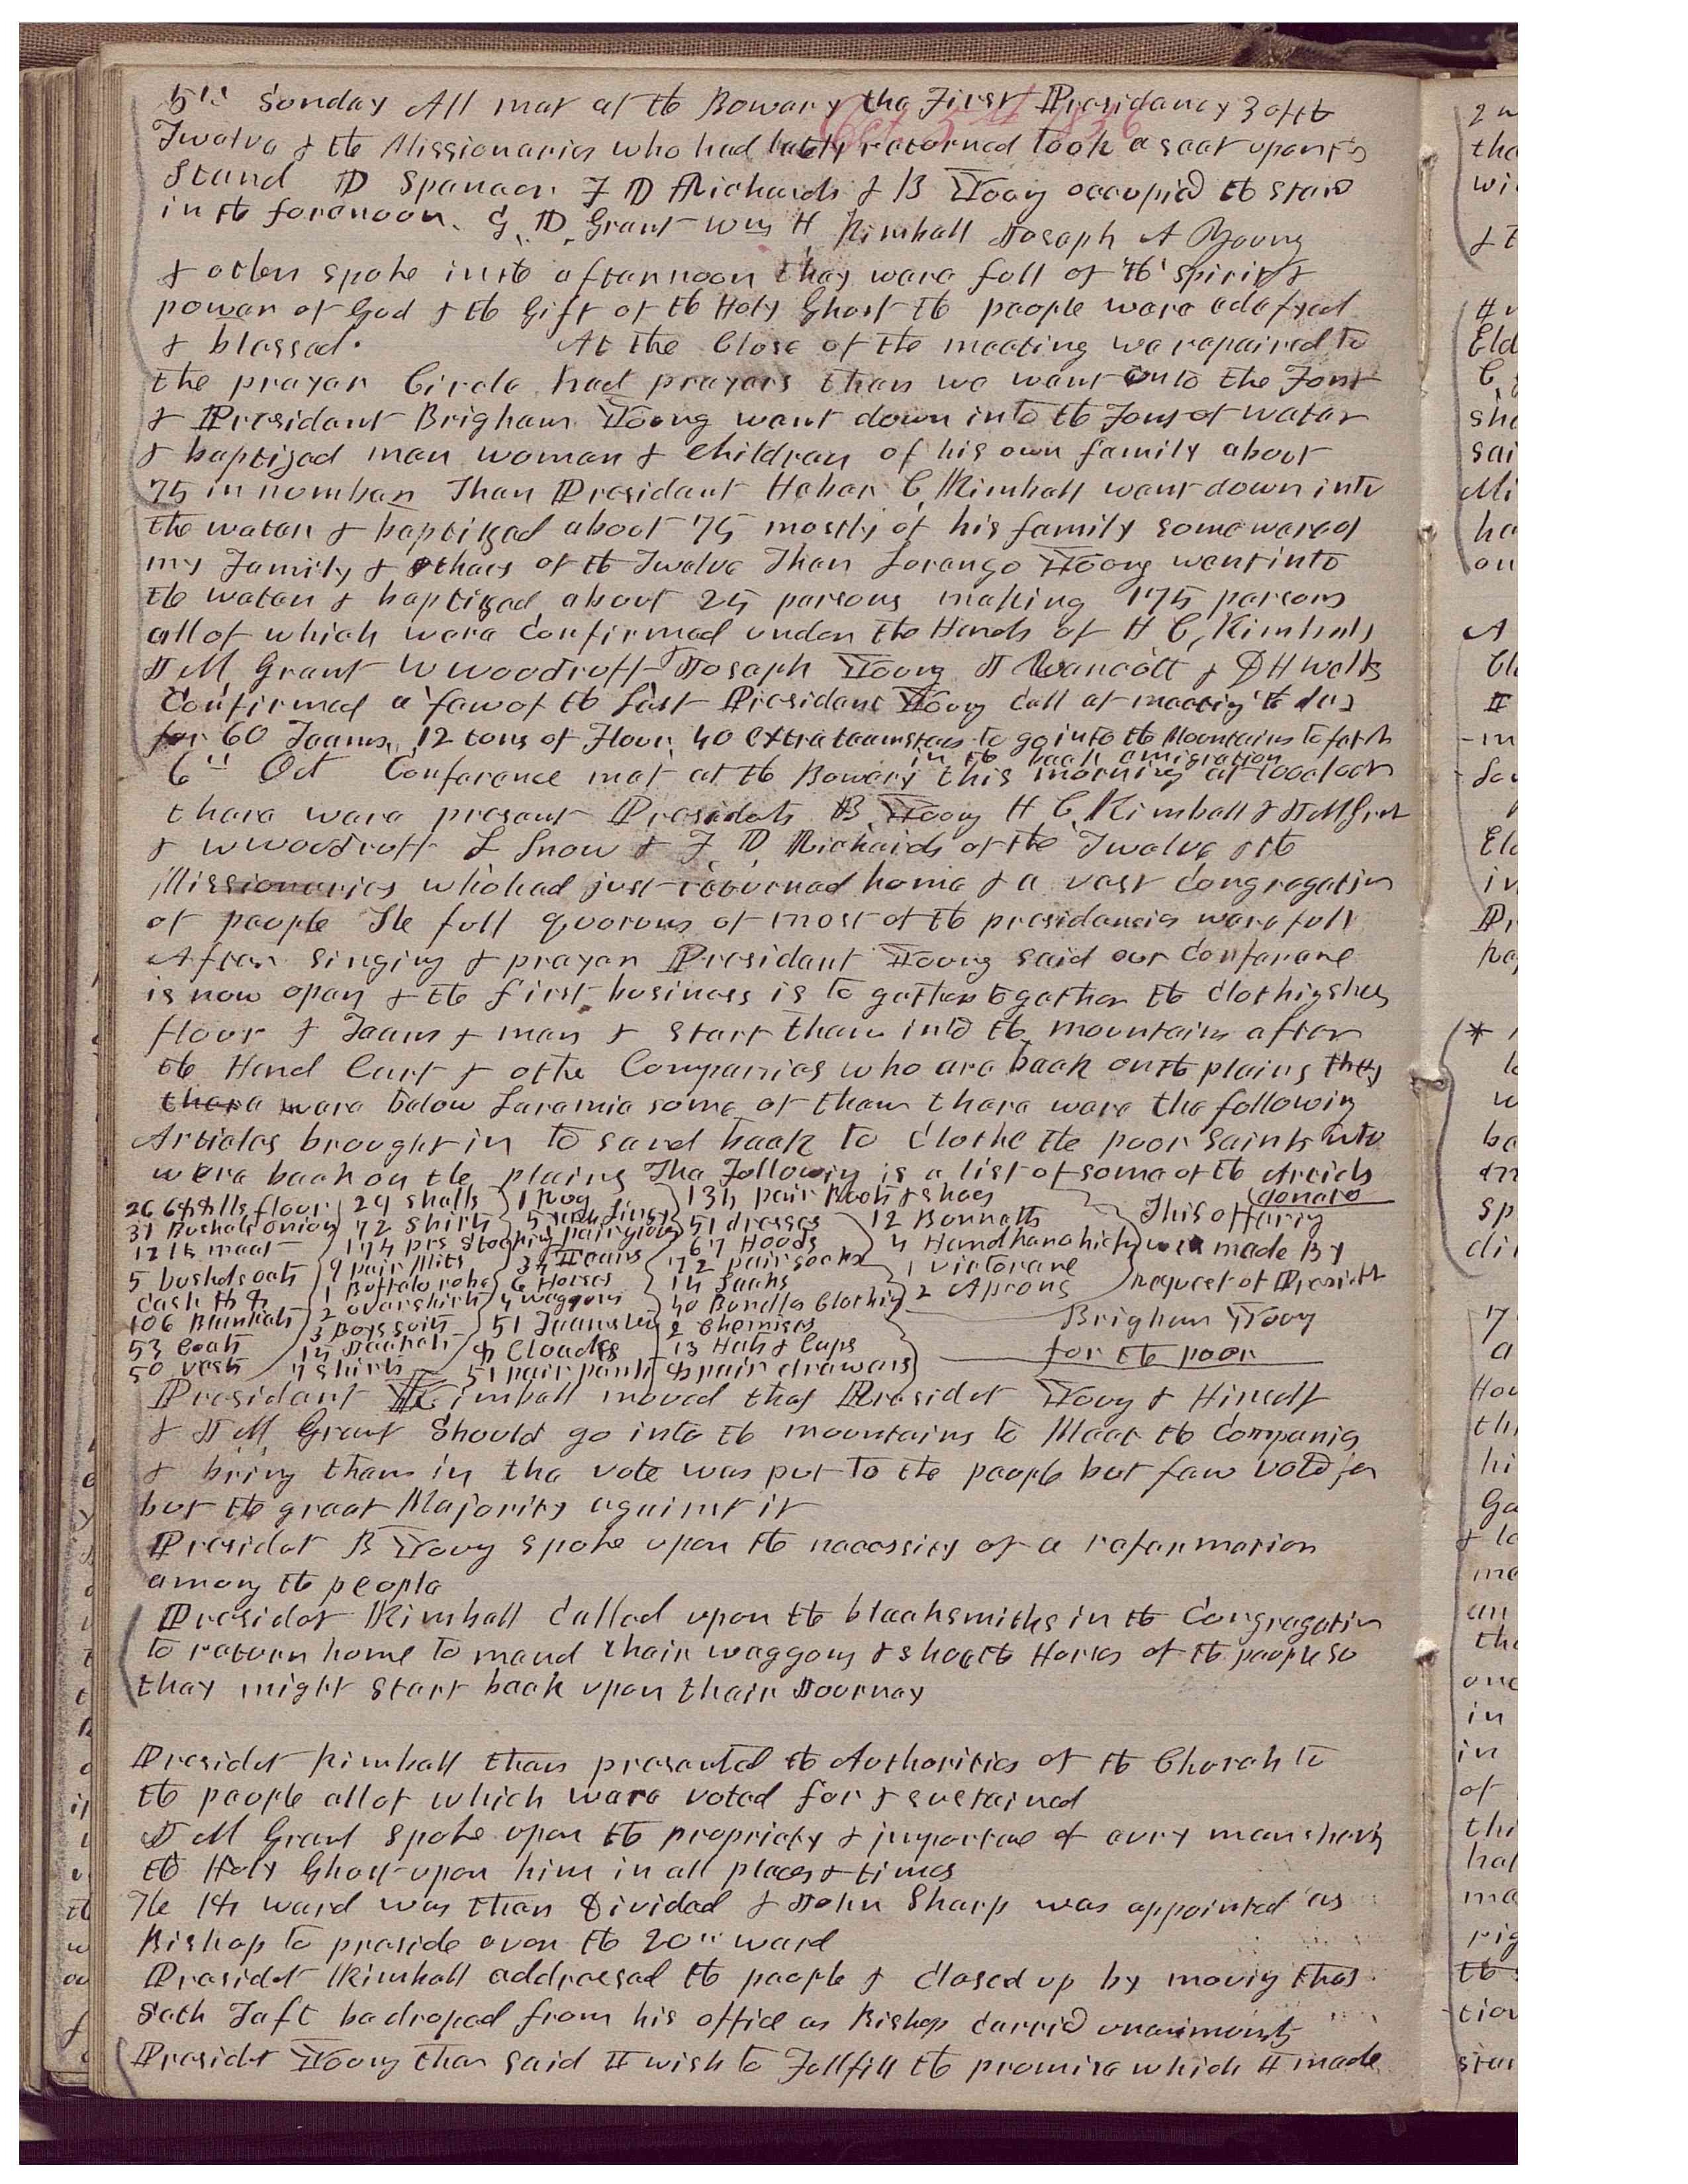 5th Sunday All met at the Bowery the First Presidency 3 of the
Oct 5th 1856
Twelve & the Missionaries who had lately returned took a seat upon the
Stand D Spencer F D Richards & B Young occupied the stand
in the forenoon. G. D. Grant Wm H Kimball Joseph A Young
& others spoke in the afternoon they were full of the spirit &
power of God & the Gift of the Holy Ghost the people were edefyed
& blessed. At the Close of the meeting we repaired to
the prayer Circle had prayers then we went onto the Font
& President Brigham Young went down into the Font of water
& baptized men women & Children of his own family about
75 in number Then President Heber C Kimball went down into
the water & baptized about 75 mostly of his family some were of
my Family & others of the Twelve Then Lorenzo Young went into
the water & baptized about 25 persons making 175 persons
all of which were Confirmed under the Hands of H C, Kimball
J M Grant W Woodruff Joseph Young J Vancott & D H Wells
Confirmed a few of the last President Young call at meeting to day
for 60 Teams, 12 tons of Flour, 40 extra teamsters to go into the Mountains to fetch
in the back emigration
6th Oct Conference met at the Bowery this morning at 10 oclock
there were present Presidets B Young H C Kimball & J M Grant
& W Woodruff L Snow & F, D, Richards of the Twelve & the
Missionaries who had just returned home & a vast Congregation
of people The full quorums of most of the presidencies were full
After singing & prayer President Young said our Conferance
is now open & the first business is to gather together the Clothing shoes
flour & Teams & men & start them into the mountains after
the Hand Cart & othe Companies who are back on the plains they
there were below Laramie some of them there were the following
Articles brought in to send back to Clothe the poor Saints who
were back on the plains The Following is a list of some of the Articls
donated
26 lbs flour 29 shalls 1 Rug 135 pair Boots & shoes
31 Bushels Onions 72 Shirts 5 51 dresses 12 Bonnetts This offering
12 lb meat 174 prs Stockings pair gloves 67 Hoods 4 Handkerchiefs were made By
5 bushels oats 9 pair Mits 34 Jeans 72 pair socks 1 victorene request of Presidt
Cash 1 Buffalo robe 6 Horses 14 Sacks 2 Aprons Brigham Young
106 Blankets 2 overshirts 4 waggons 40 Bundles Clothing for the poor
53 Coats 3 Boys suits 51 Teamsters 2 Chemises
50 vests 14 Jackets 7 skirts Cloaks 13 Hats & Caps
51 pair pants pair drawers
President Kimball moved that Presidet Young & Himself
& J M Grant Should go into the mountains to Meet the Companies
& bring them in the vote was put to the people but few voted for
but the great Majority against it
Presidet B Young spoke upon the necessity of a refermation
among the people
Presidet Kimball Called upon the blacksmiths in the Congregation
to return home to mend their waggons & shoe the Horses of the people so
they might start back upon their Journey
Presidet Kimball then presented the Authorities of the Church to
the people all of which were voted for & sustained
J M Grant Spoke upon the propriety & importance of evry man having
the Holy Ghost upon him in all places & times
The 14 ward was then Divided & John Sharp was appointed as
Bishop to preside over the 20th ward
Presidet Kimball addressed the people & closed up by moving that
Seth Taft be droped from his office as Bishop Carried unanimously
Presidet Young then said I wish to Fullfill the promise which I made